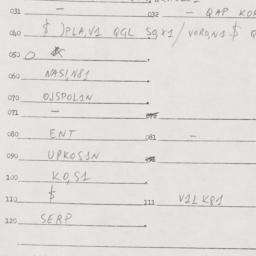 031 — 032 — QAP KOR
040 $ )PLA,V1 QGL SQX1/VORO,N1 $ Q
050
060 NASI,N81
070 OJSPOL1N
071 —
080 ENT 081 —
090 UPKOS1N
100 KO,S1
110 $ 111 V1LK81
120 SERP